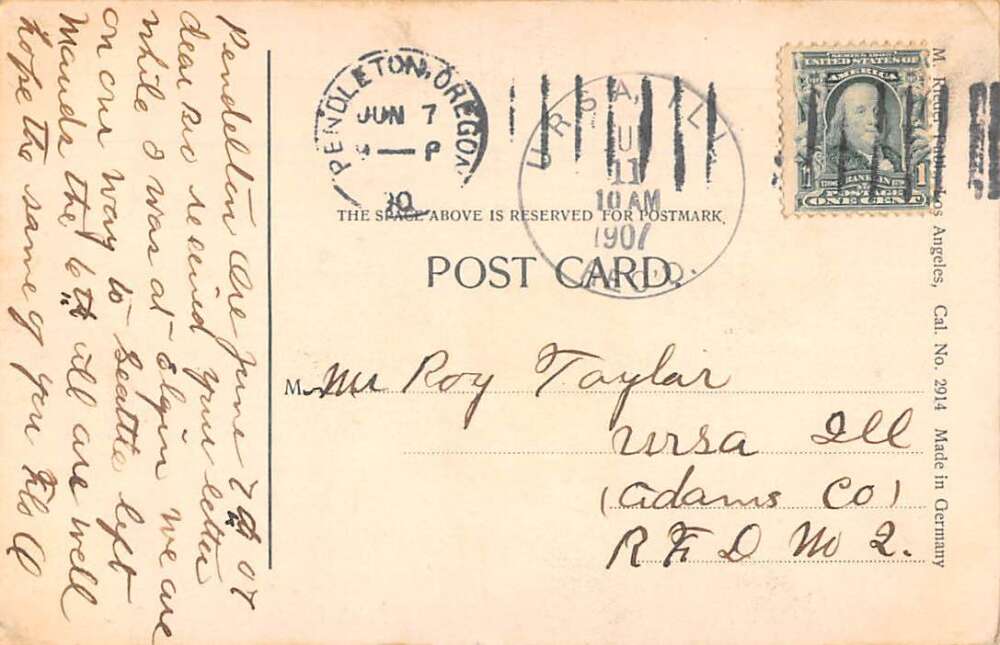 Pendelton Ore June 7th 07
dear bro received your letter
while I was at Elgin we are
on our way to Seattle left
Mauds the 6th all are well
hope the same of you Flo A
PENDLETON, OREGON
JUN 7
P
URSA, ILL.
11
10 AM
1907
REC'D.
SERIES 1902
UNITED STATES OF
AMERICA
FRANKLIN
POSTAGE
1 1
ONE CENT
THE SPACE ABOVE IS RESERVED FOR POSTMARK.
POST CARD.
M Mr Roy Taylor
Ursa Ill
(Adams Co)
R F D No 2.
M. Rieder, Publ., Los Angeles, Cal. No. 2914 Made in Germany